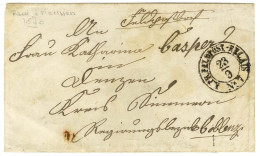 Feldpostbrief
An
Frau Katharina Casper
in
Denzen
Kreis Simmern
Regierungsbezirk Coblenz
K.PR.FELDPOST-RELAIS
23
9